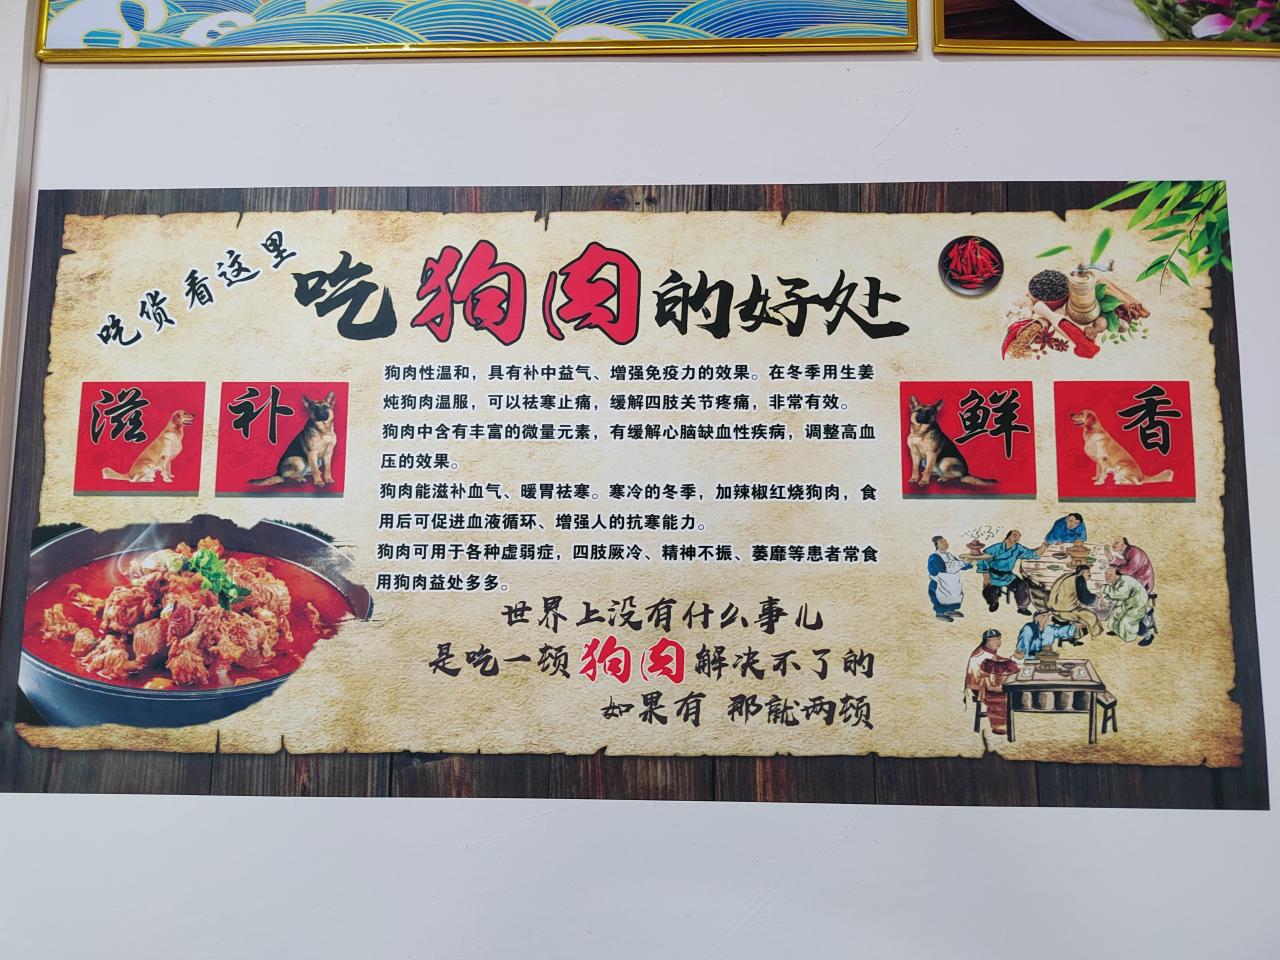 吃货看这里
吃狗肉的好处
滋
补
鲜
香
狗肉性温和，具有补中益气、增强免疫力的效果。在冬季用生姜
炖狗肉温服，可以祛寒止痛，缓解四肢关节疼痛，非常有效。
狗肉中含有丰富的微量元素，有缓解心脑缺血性疾病，调整高血
压的效果。
狗肉能滋补血气、暖胃祛寒。寒冷的冬季，加辣椒红烧狗肉，食
用后可促进血液循环、增强人的抗寒能力。
狗肉可用于各种虚弱症，四肢厥冷、精神不振、萎靡等患者常食
用狗肉益处多多。
世界上没有什么事儿
是吃一顿狗肉解决不了的
如果有 那就两顿